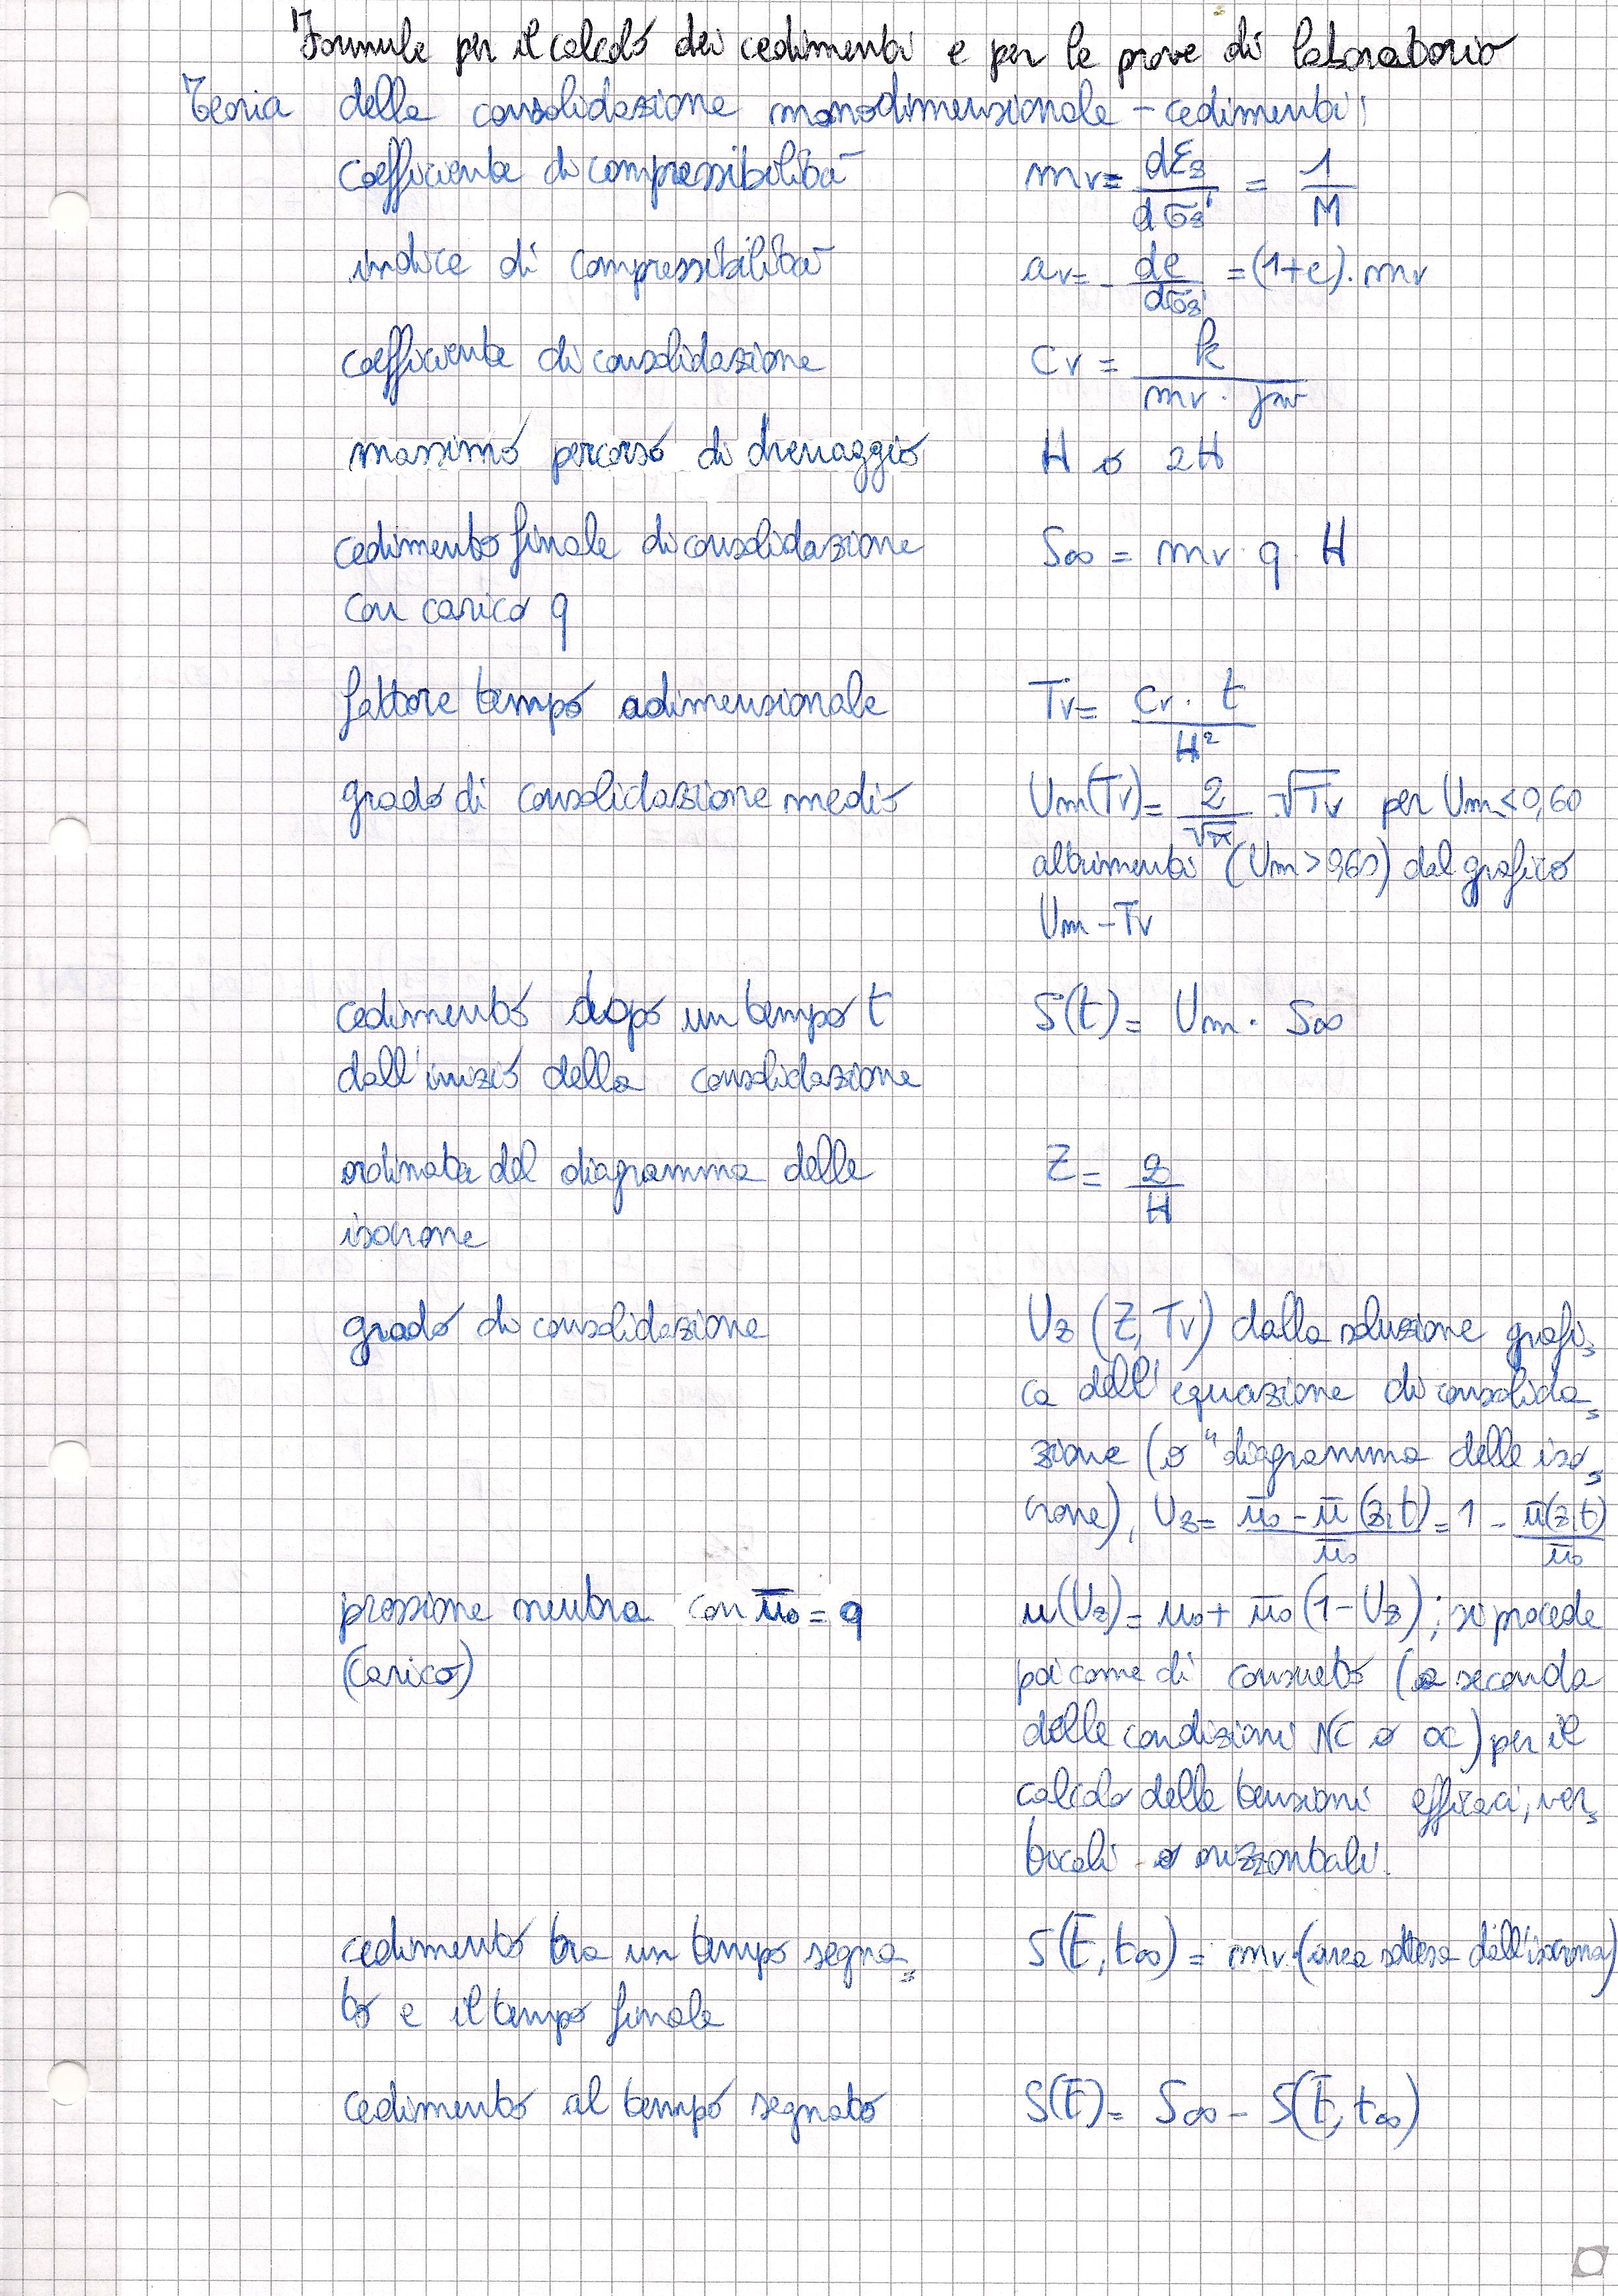 Formule per il calcolo dei cedimenti e per le prove di laboratorio
Teoria della consolidazione monodimensionale - cedimenti:
coefficiente di compressibilità mv = dεz / dσz' = 1 / M
indice di compressibilità av = - de / dσz' = (1+e) · mv
coefficiente di consolidazione cv = k / mv · γw
massimo percorso di drenaggio H o 2H
cedimento finale di consolidazione S∞ = mv · q · H
con carico q
fattore tempo adimensionale Tv = cv · t / H²
grado di consolidazione medio Um(Tv) = 2 / √π · √Tv per Um < 0,60
altrimenti (Um > 0,60) dal grafico
Um - Tv
cedimento dopo un tempo t S(t) = Um · S∞
dall'inizio della consolidazione
ordinata del diagramma delle Z = z / H
isocrone
grado di consolidazione Uz (Z, Tv) dalla soluzione grafi,
ca dell'equazione di consolida,
zione (o "diagramma delle iso,
crone), Uz = ū0 - ū (z,t) / ū0 = 1 - ū(z,t) / ū0
pressione neutra con ū0 = q u(Uz) = u0 + ū0 (1 - Uz); si procede
(carico) poi come di consueto (a seconda
delle condizioni NC o OC) per il
calcolo delle tensioni efficaci, ver,
ticali o orizzontali.
cedimento tra un tempo segna, S(t̄, t∞) = mv · (area sottesa dall'isocrona)
to e il tempo finale
cedimento al tempo segnato S(t̄) = S∞ - S(t̄, t∞)